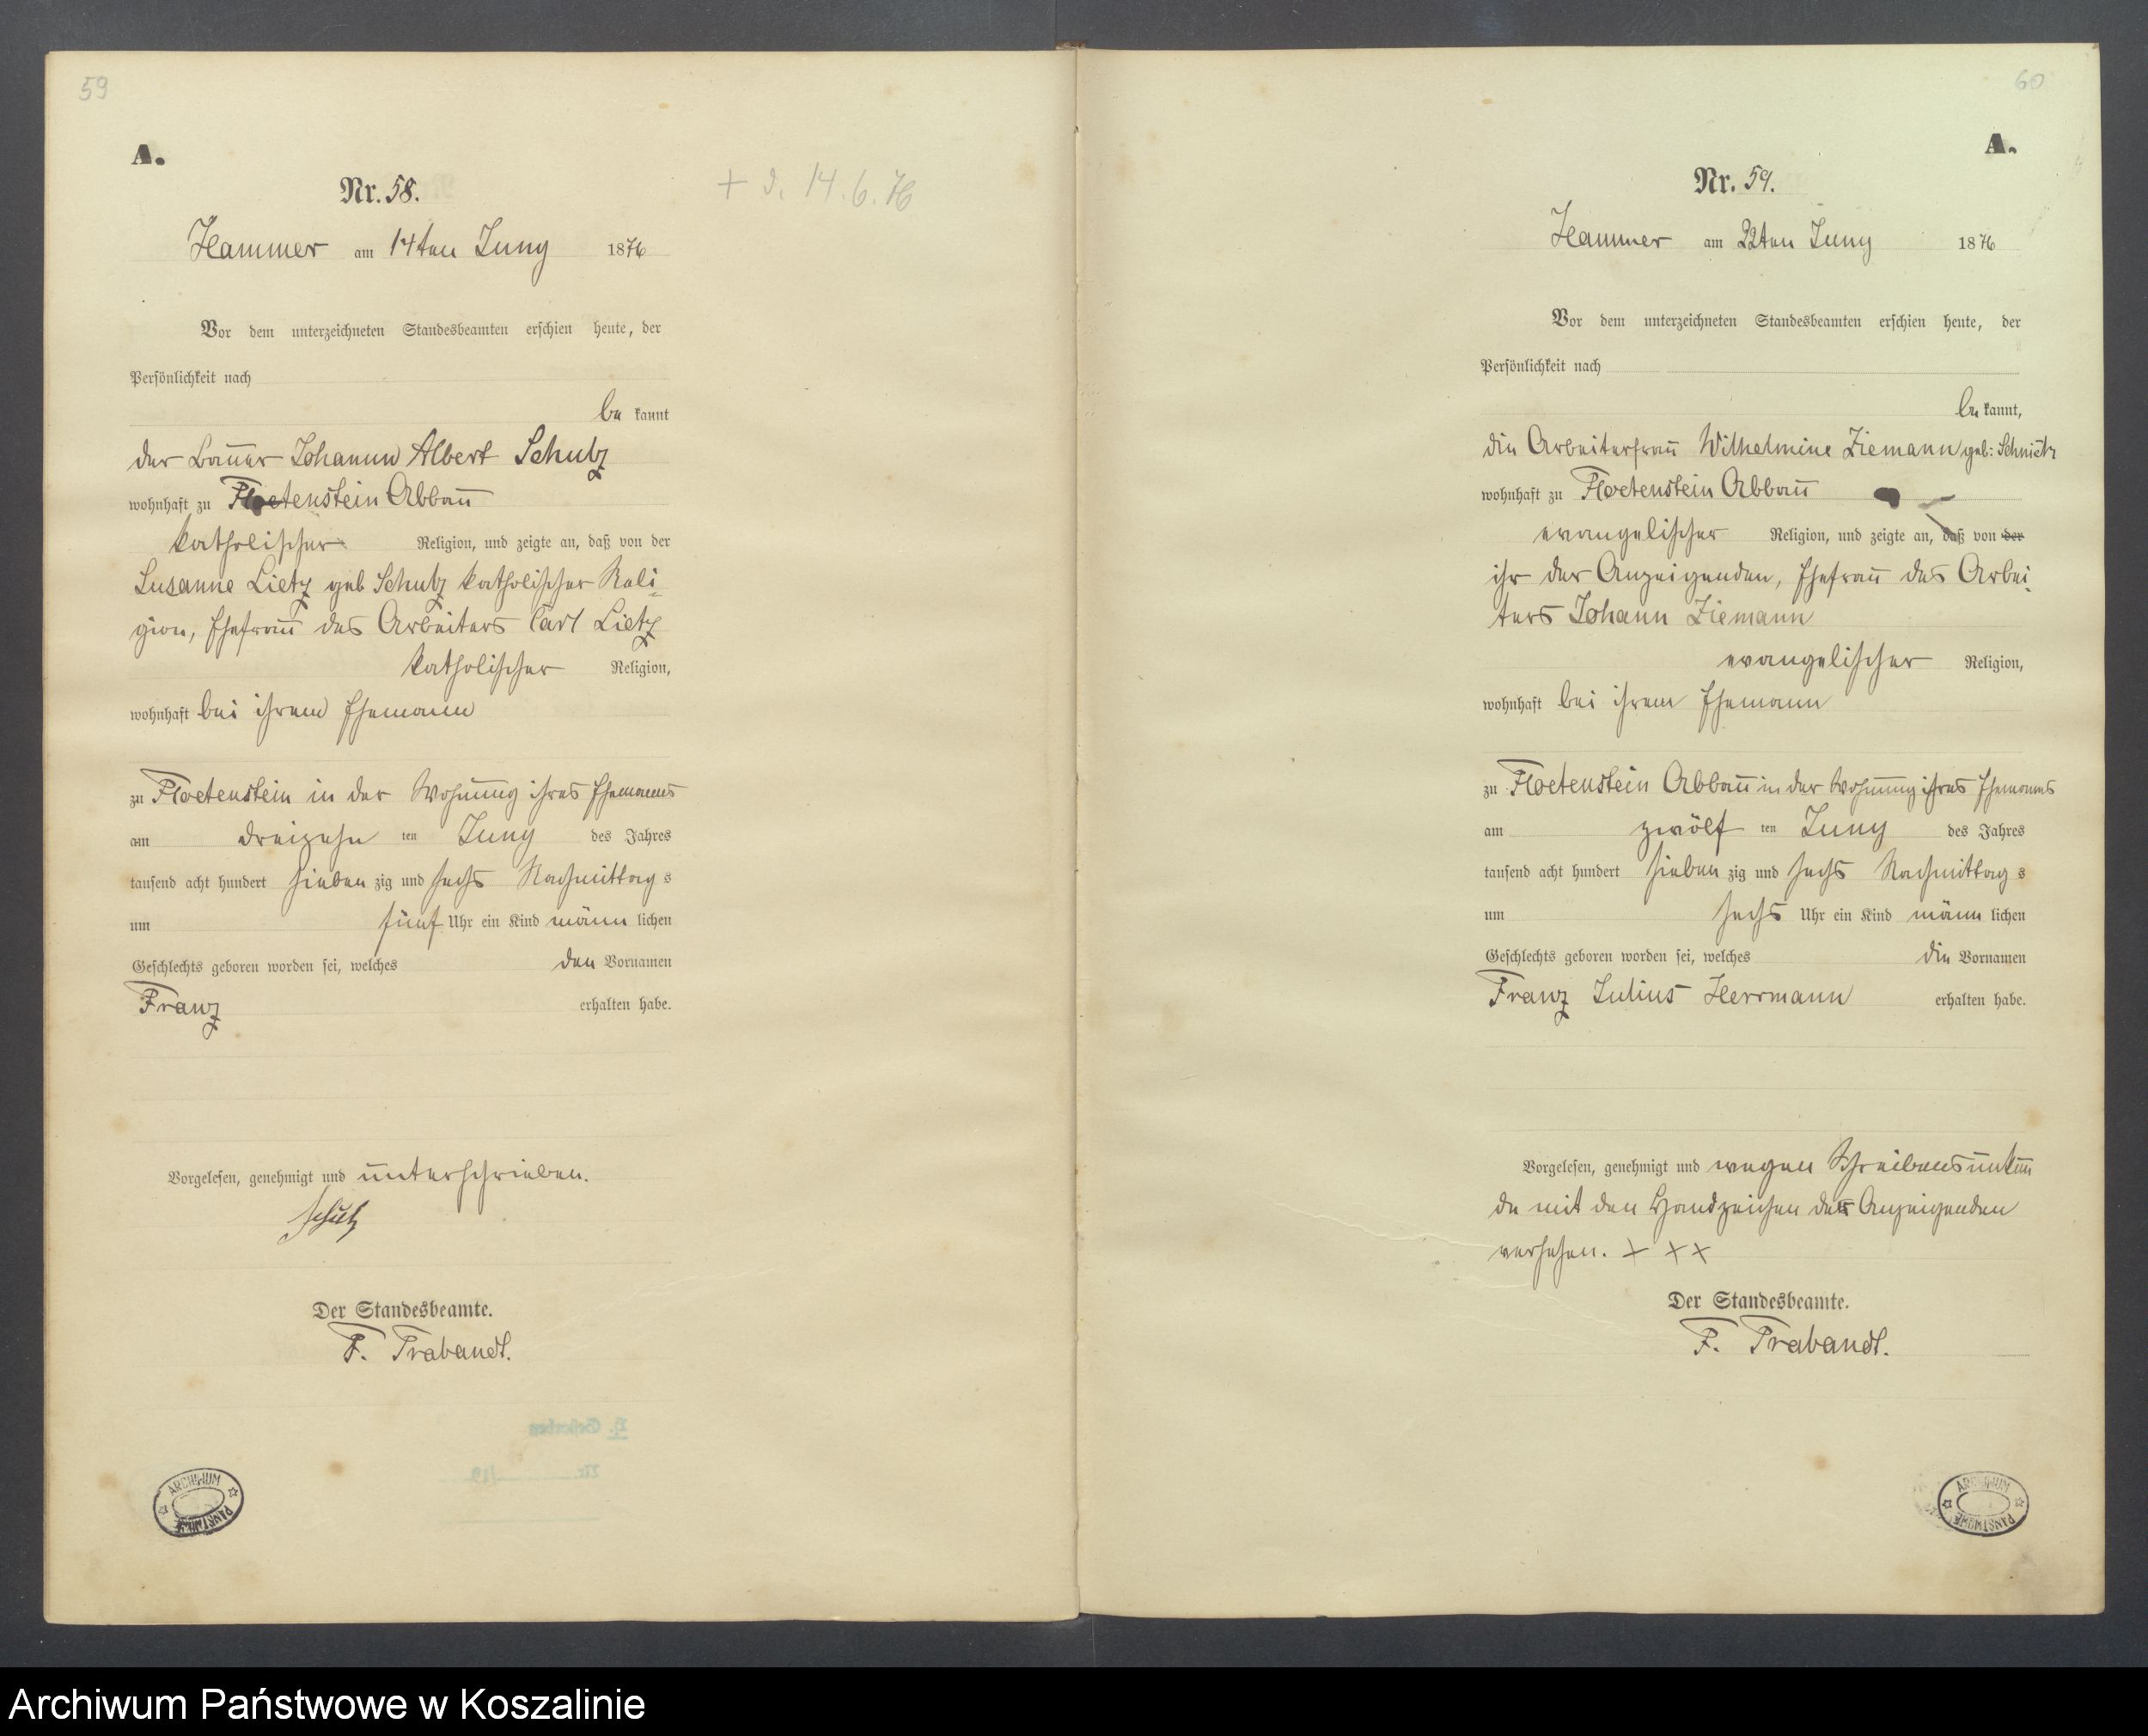 59
A.
Nr. 58.
+ d. 14.6.76
Hammer am 14ten Juny 1876
Vor dem unterzeichneten Standesbeamten erschien heute, der
Persönlichkeit nach
be kannt
der Bauer Johann Albert Schulz
wohnhaft zu Floetenstein Abbau
katholischer Religion, und zeigte an, daß von der
Susanne Lietz geb Schulz katholischer Reli-
gion, Ehefrau des Arbeiters Carl Lietz
katholischer Religion,
wohnhaft bei ihrem Ehemann
zu Floetenstein in der Wohnung ihres Ehemanns
am dreizehn ten Juny des Jahres
tausend acht hundert sieben zig und sechs Nachmittag s
um fünf Uhr ein Kind männ lichen
Geschlechts geboren worden sei, welches den Vornamen
Franz erhalten habe.
Vorgelesen, genehmigt und unterschrieben.
Schulz
Der Standesbeamte.
F. Trabandt.
ARCHIWUM PAŃSTWOWE
60
A.
Nr. 59.
Hammer am 22ten Juny 1876
Vor dem unterzeichneten Standesbeamten erschien heute, der
Persönlichkeit nach
be kannt,
die Arbeiterfrau Wilhelmine Ziemann geb:
wohnhaft zu Floetenstein Abbau
evangelischer Religion, und zeigte an, daß von der
ihr der Anzeigenden, Ehefrau des Arbei-
ters Johann Ziemann
evangelischer Religion,
wohnhaft bei ihrem Ehemann
zu Floetenstein Abbau in der Wohnung ihres Ehemannes
am zwölf ten Juny des Jahres
tausend acht hundert sieben zig und sechs Nachmittag s
um sechs Uhr ein Kind männ lichen
Geschlechts geboren worden sei, welches die Vornamen
Franz Julius Herrmann erhalten habe.
Vorgelesen, genehmigt und wegen Schreibensunkun
de mit den Handzeichen der Anzeigenden
versehen. + + +
Der Standesbeamte.
F. Trabandt.
ARCHIWUM PAŃSTWOWE
Archiwum Państwowe w Koszalinie